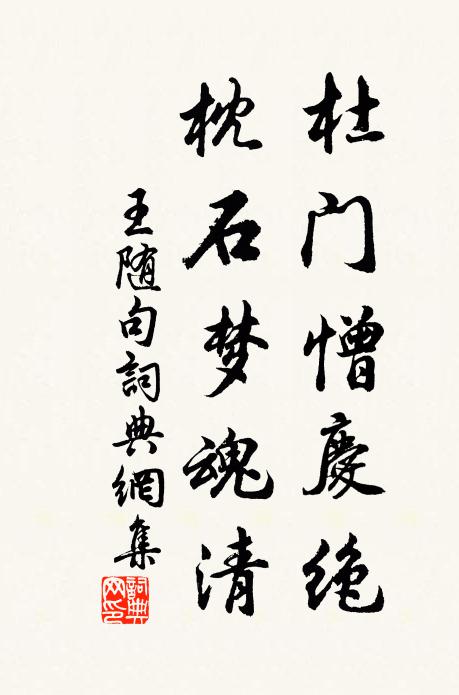 杜门憎慶绝
枕石梦魂清
王随句詞典網集
詞典网印